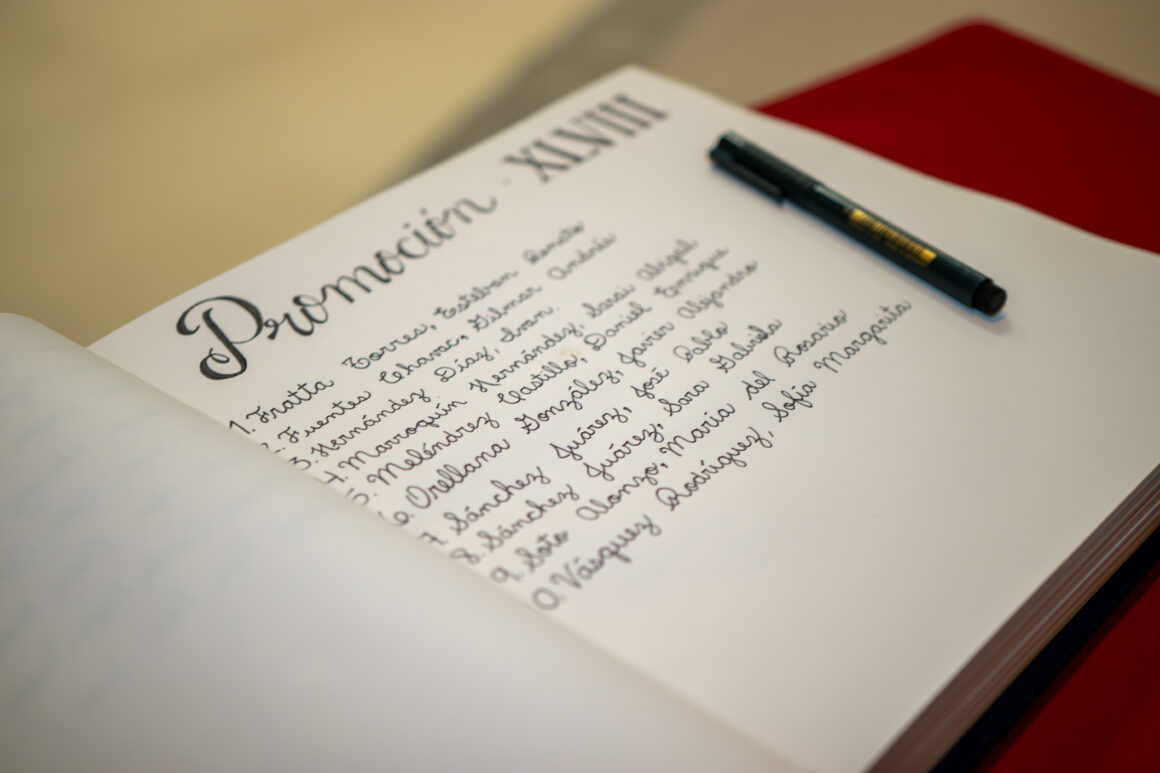 Promoción · XLVIII
1. Fratta Torres, Esteban Renato
2. Fuentes Chamc, Gilmar Andrés
3. Hernández Díaz, Ivan.
4. Marroquín Hernández, Sarai Abigail
5. Meléndrez Castillo, Daniel Enrique
6. Orellana González, Javier Alejandro
7. Sánchez Juárez, José Pablo
8. Sánchez Juárez, Sara Gabriela
9. Soto Alonzo, María del Rosario
0. Vásquez Rodríguez, Sofía Margarita